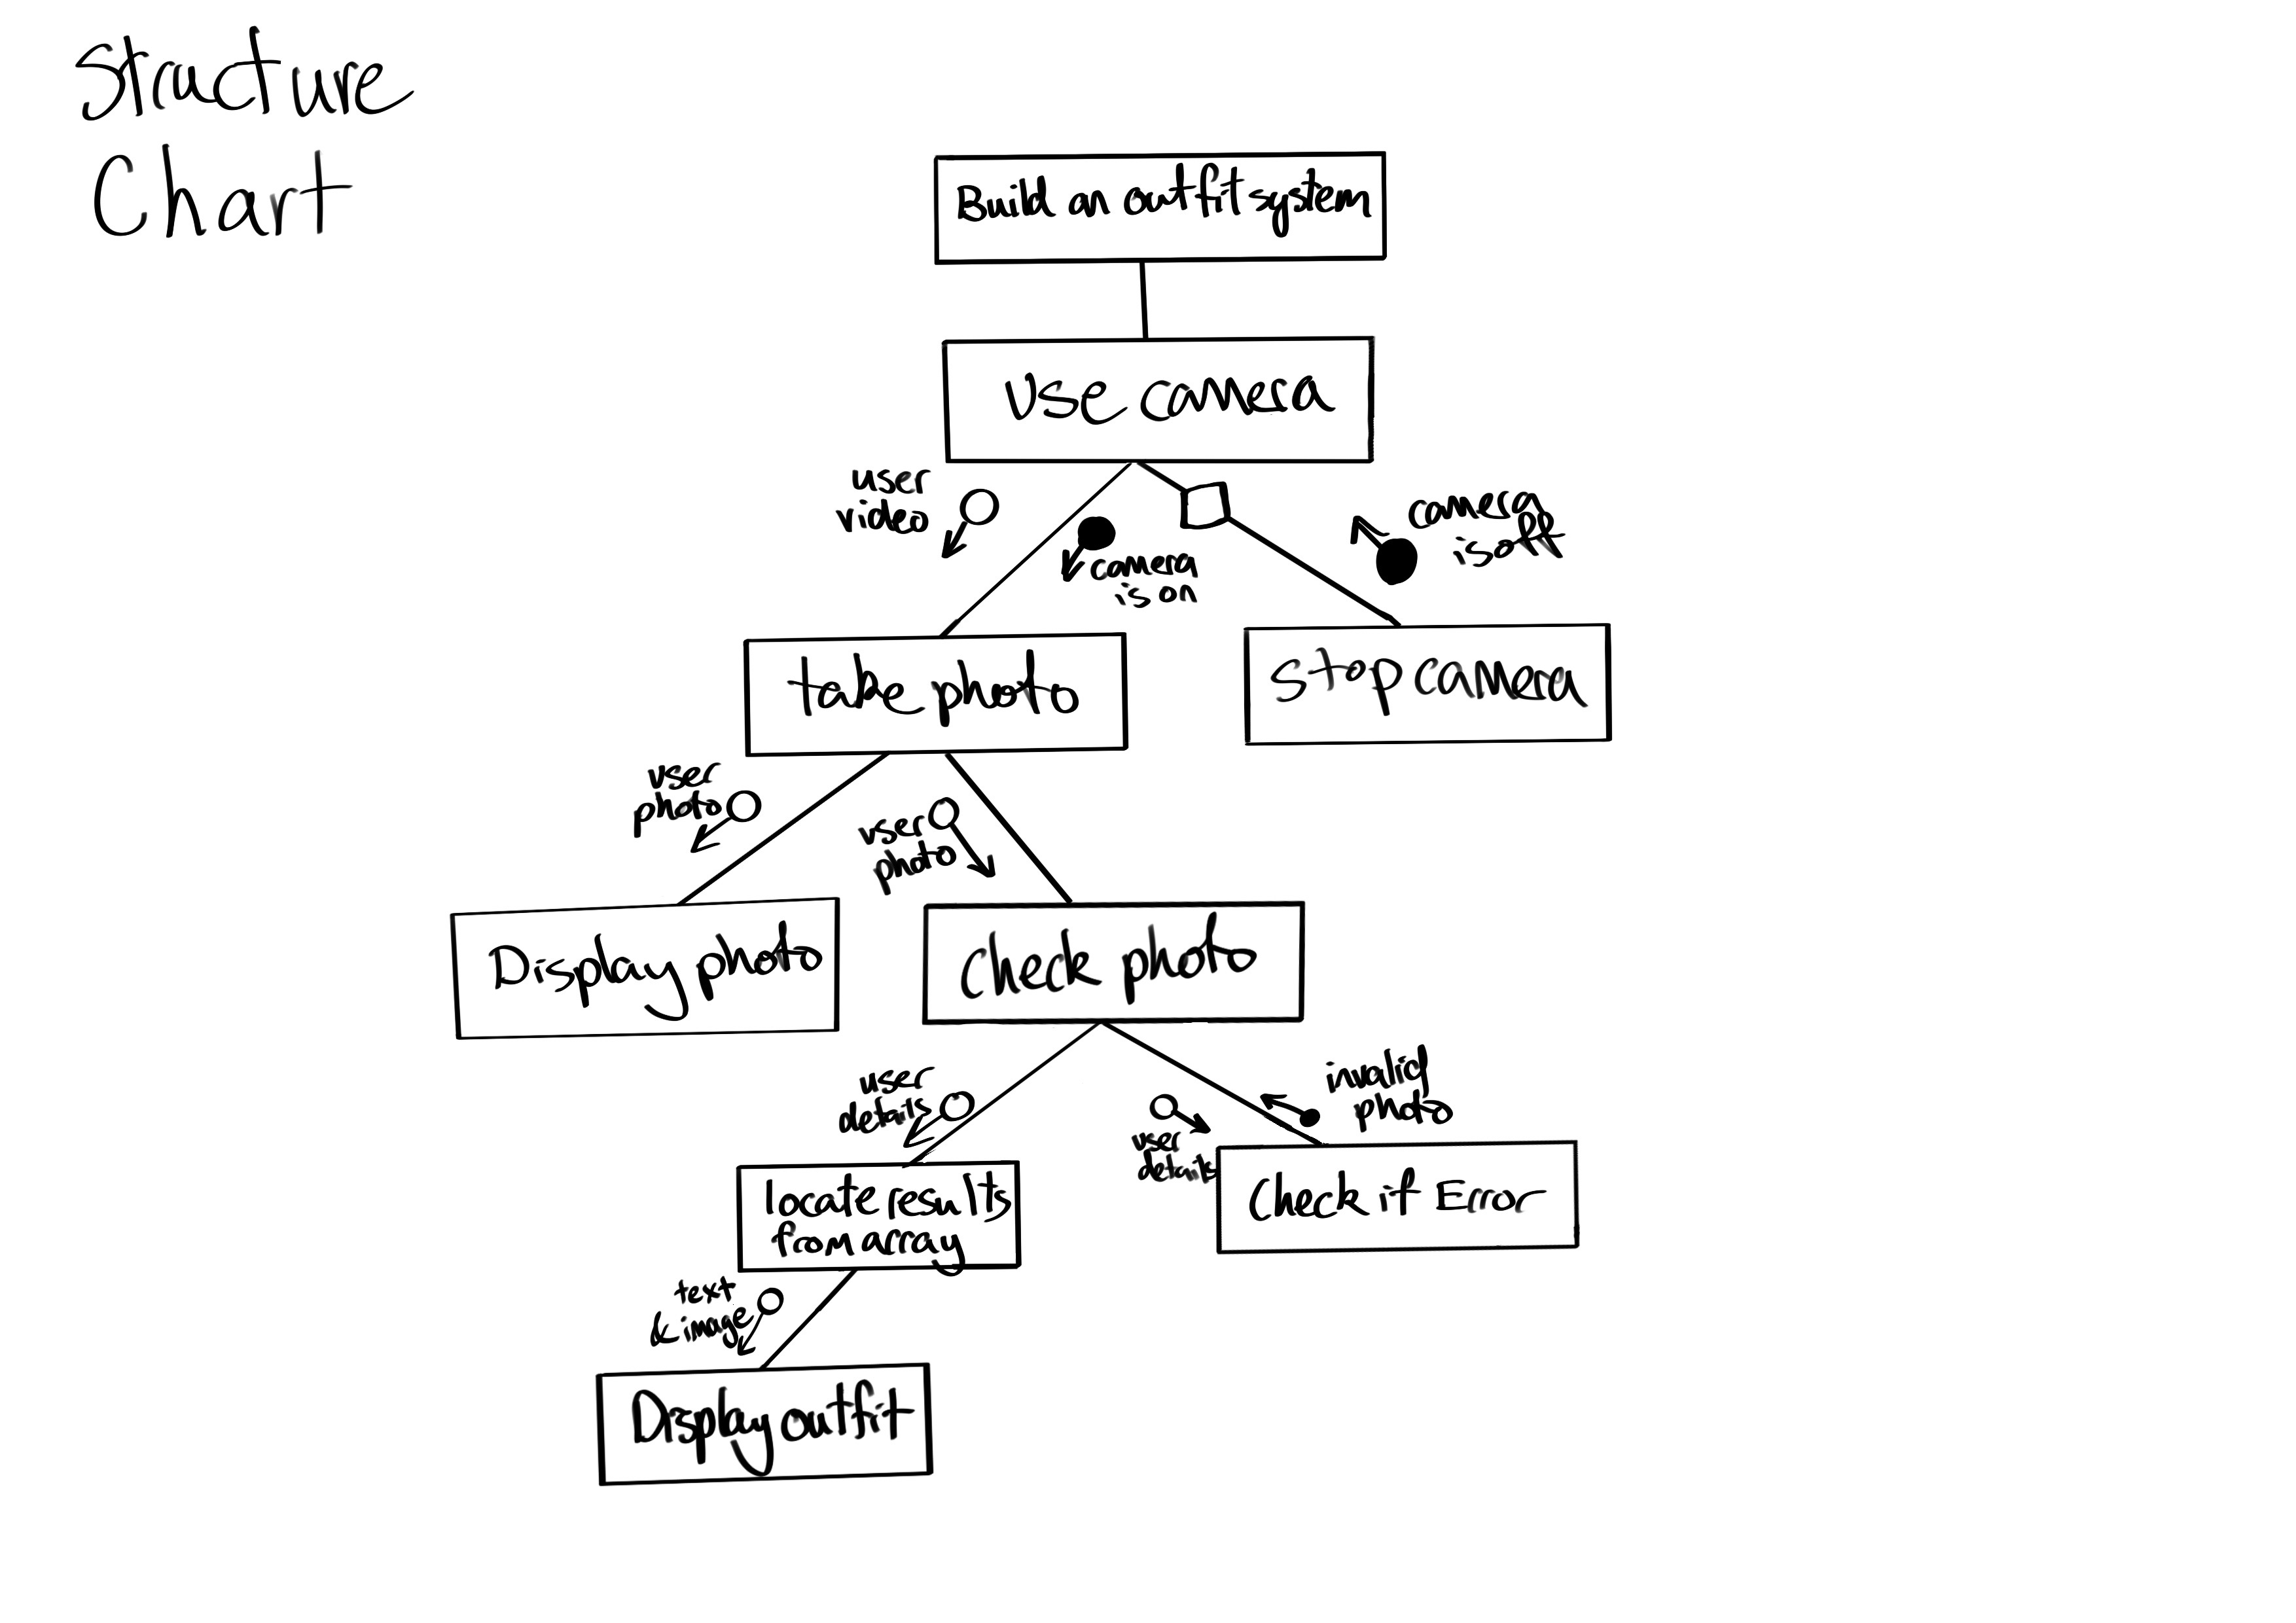 Structure
Chart
Build an outfit system
use camera
user
video
camera
is on
camera
is off
take photo
stop camera
user
photo
user
photo
Display photo
Check photo
user
details
user
details
invalid
photo
locate results
from array
Check if Error
text
& image
Display outfit